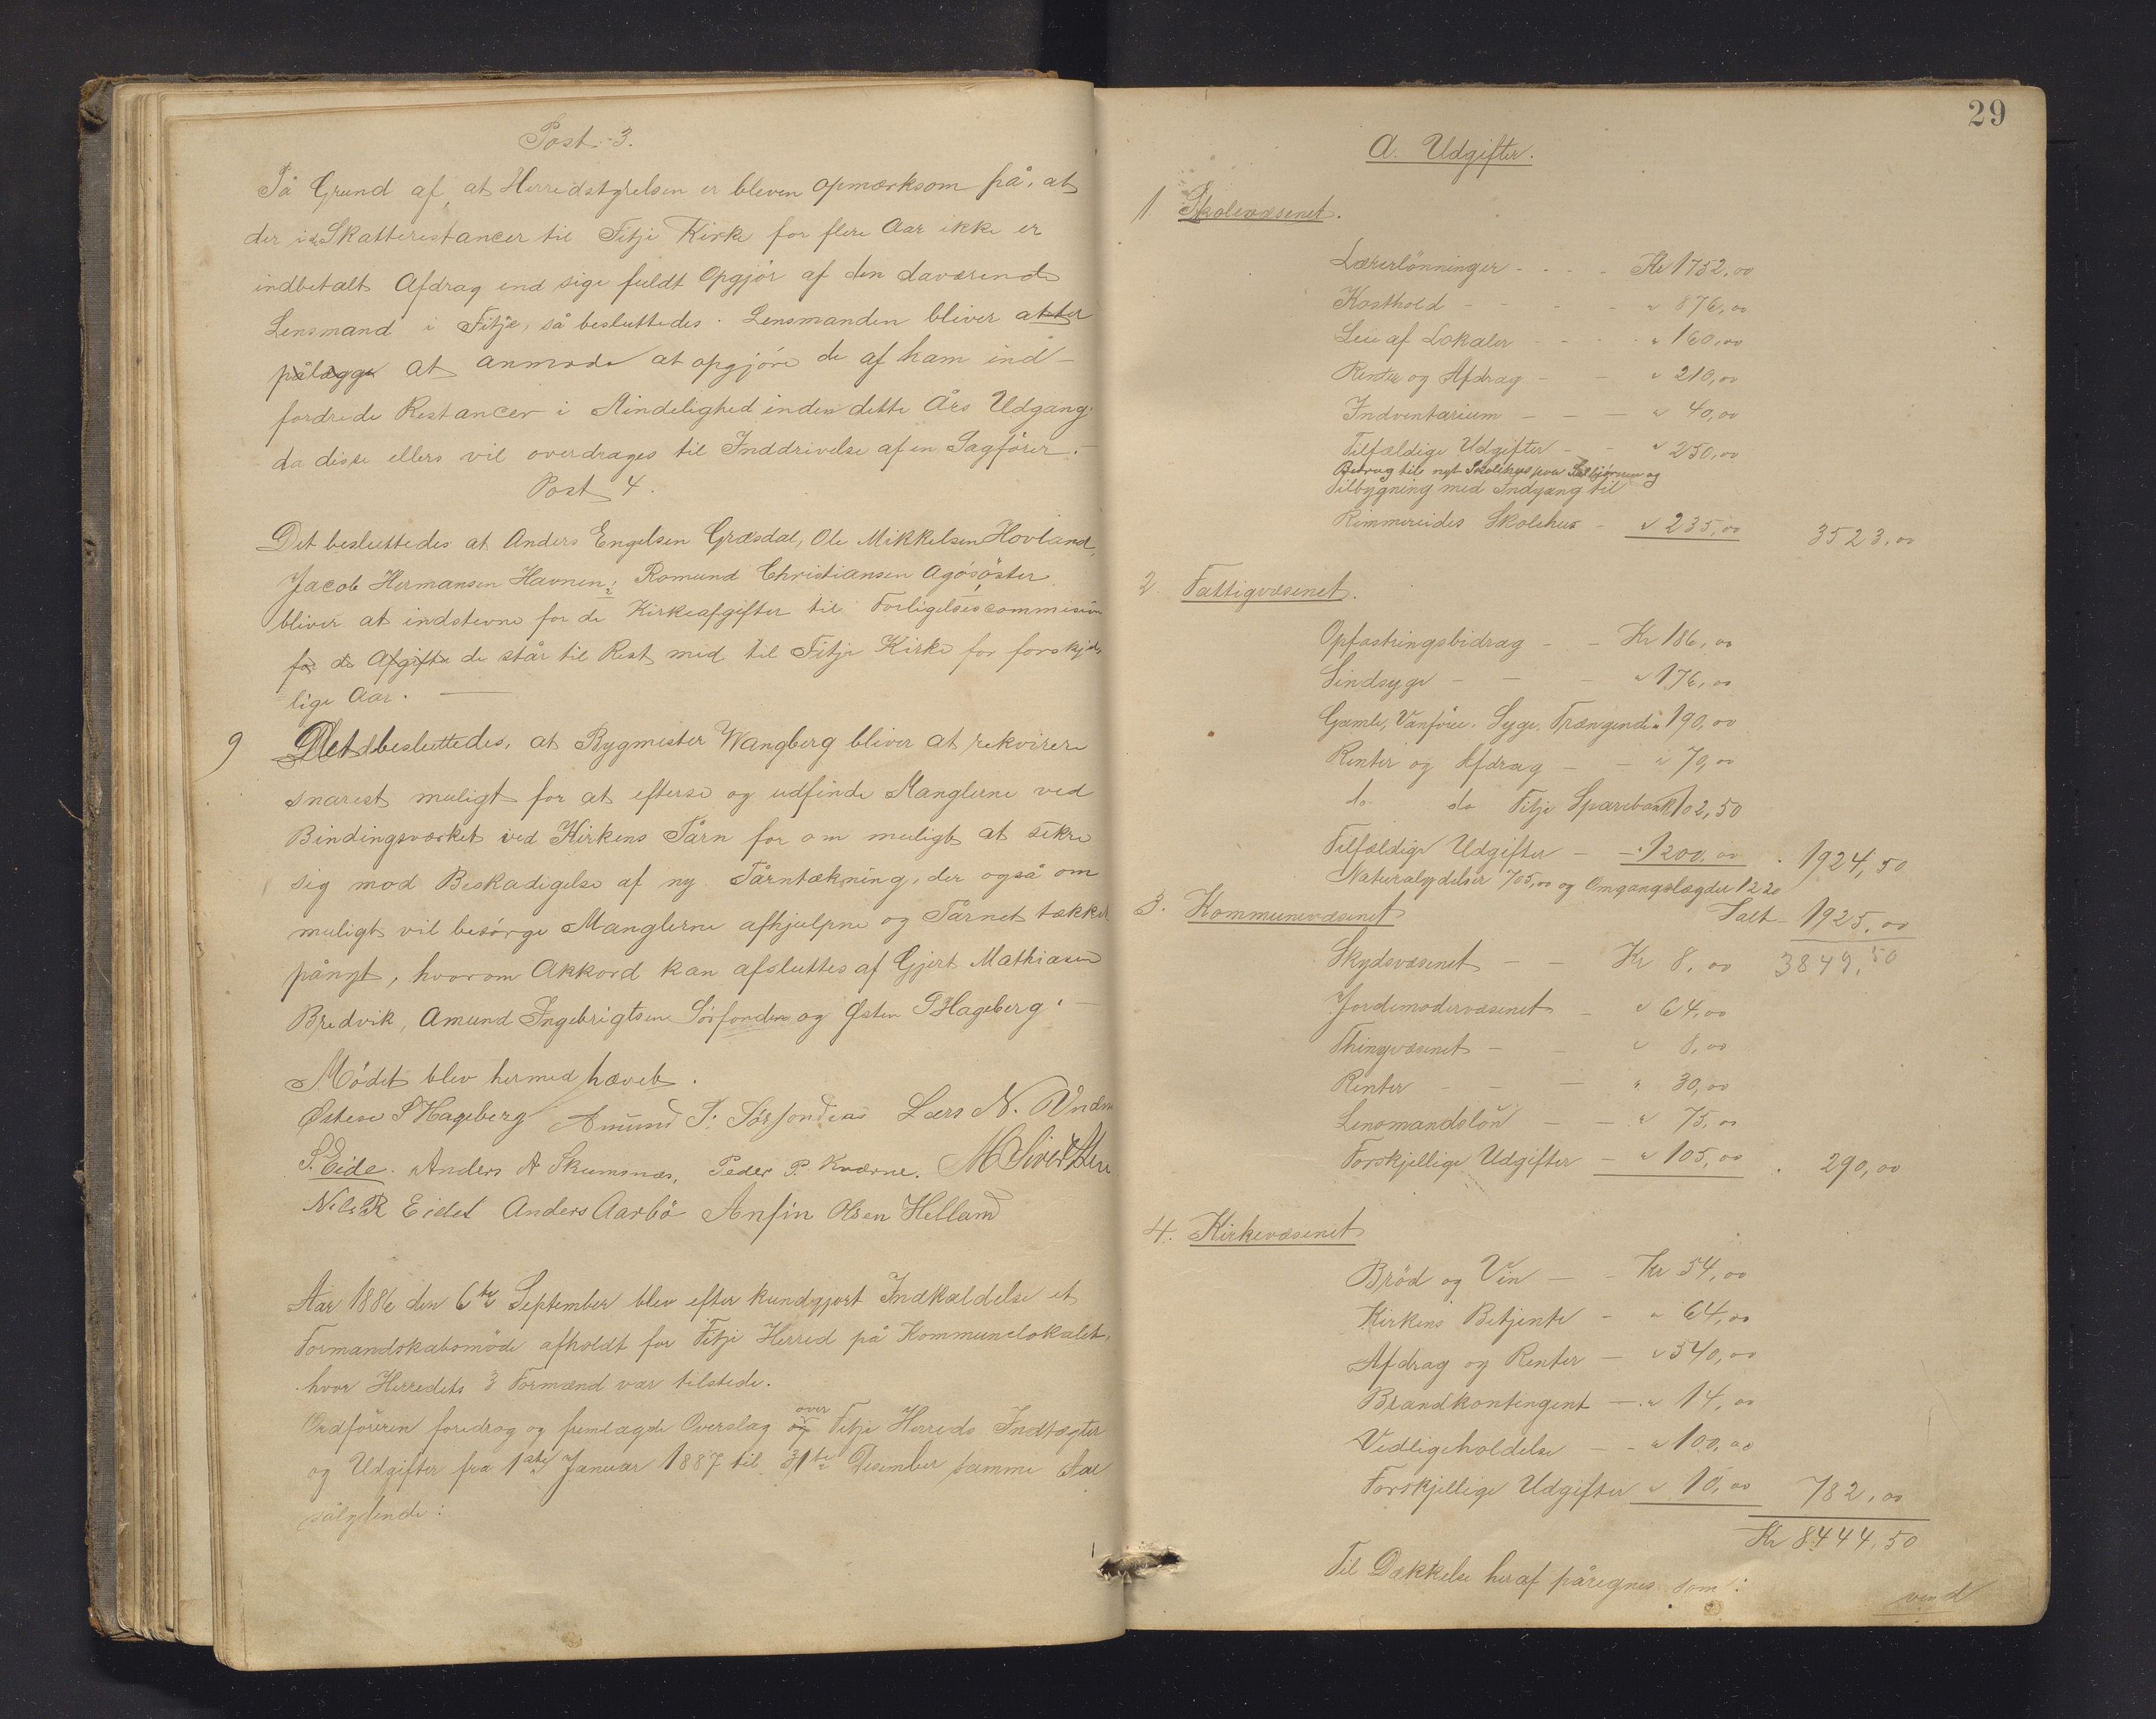 Post 3.
På Grund af, at Herredstyrelsen er bleven opmærksom på, at
der i Skatterestancer til Fitje Kirke for flere Aar ikke er
indbetalt Afdrag end sige fuldt Opgjör af den daværende
Lensmand i Fitje, så besluttedes. Lensmanden bliver atter
pålægge at anmode at opgjöre de af ham ind-
fordrede Restancer i Mindelighed inden dette Års Udgang.
da disse ellers vil overdrages til Inddrivelse af en Sagförer. -
Post 4.
Det besluttedes at Anders Engelsen Græsdal, Ole Mikkelsen Hovland,
Jacob Hermansen Havnen; Romund Christiansen Agösöster
bliver at indstevne for de Kirkeafgifter til Forligelsescommision
for de Afgifter de står til Rest med til Fitje Kirke for forskjel-
lige Aar. -
9 Det besluttedes, at Bygmester Wangberg bliver at rekvirere
snarest muligt for at efterse og udfinde Manglerne ved
Bindingsværket ved Kirkens Tårn for om muligt at sikre
sig mod Beskadigelse af ny Tårntækning, der også om
muligt vil besörge Manglerne afhjulpne og Tårnet tækket
pånyt, hvorom Akkord kan afsluttes af Gjert Mathiasen
Bredvik, Amund Ingebrigtsen Sörfonden og Østen P Hageberg. -
Mödet blev hermed hævet.
Østen P Hageberg Amund I. Sörfonden Lars N.
S. Eide. Anders A Skumsnæs, Peder P. Kværne. M Sivertsen
Nils R Eidet Anders Aarbö Anfin Olsen Helland
Aar 1886 den 6te September blev efter kundgjort Indkaldelse et
Formandskabsmöde afholdt for Fitje Herred på Kommunelokalet,
hvor Herredets 3 Formænd var tilstede.
Ordföreren foredrog og fremlagde Overslag og over Fitje Herreds Indtægter
og Udgifter fra 1ste Januar 1887 til 31te Desember samme Aar
sålydende:
29
A. Udgifter.
1 Skolevæsenet.
Lærerlönninger - - - Kr 1752,00
Kosthold - - - " 876,00
Leie af Lokaler - - - " 160,00
Renter og Afdrag - - " 210,00
Indventarium - - - " 40,00
Tilfældige Udgifter - - " 250,00
Bidrag til nyt Skolehus paa Selbjörnen og
Tilbygning med Indgang til
Rimmereides Skolehus - " 235,00 3523,00
2 Fattigvæsenet.
Opfostringsbidrag - - Kr 186,00
Sindsyge - - - " 176,00
Gamle, Vanföre, Syge, Trængende " 190,00
Renter og Afdrag - - " 70,00
do do Fitje Sparebank 102,50
Tilfældige Udgifter - - " 1200,00 . 1924,50
Naturalydelser 705,00 og Omgangslægder 1220
Ialt 1925,00
3. Kommunevæsenet
3849,50
Skydsvæsenet - - Kr 8,00
Jordemodervæsenet - " 64,00
Thingvæsenet - - " 8,00
Renter - - - " 30,00
Lensmandslön - - " 75,00
Forskjellige Udgifter - " 105,00 . 290,00
4. Kirkevæsenet
Bröd og Vin - - Kr 54,00
Kirkens Betjente - " 64,00
Afdrag og Renter - " 540,00
Brandkontingent - " 14,00
Vedligeholdelse - - " 100,00
Forskjellige Udgifter " 10,00 782,00
Kr 8444,50
Til Dækkelse heraf påregnes som:
vend